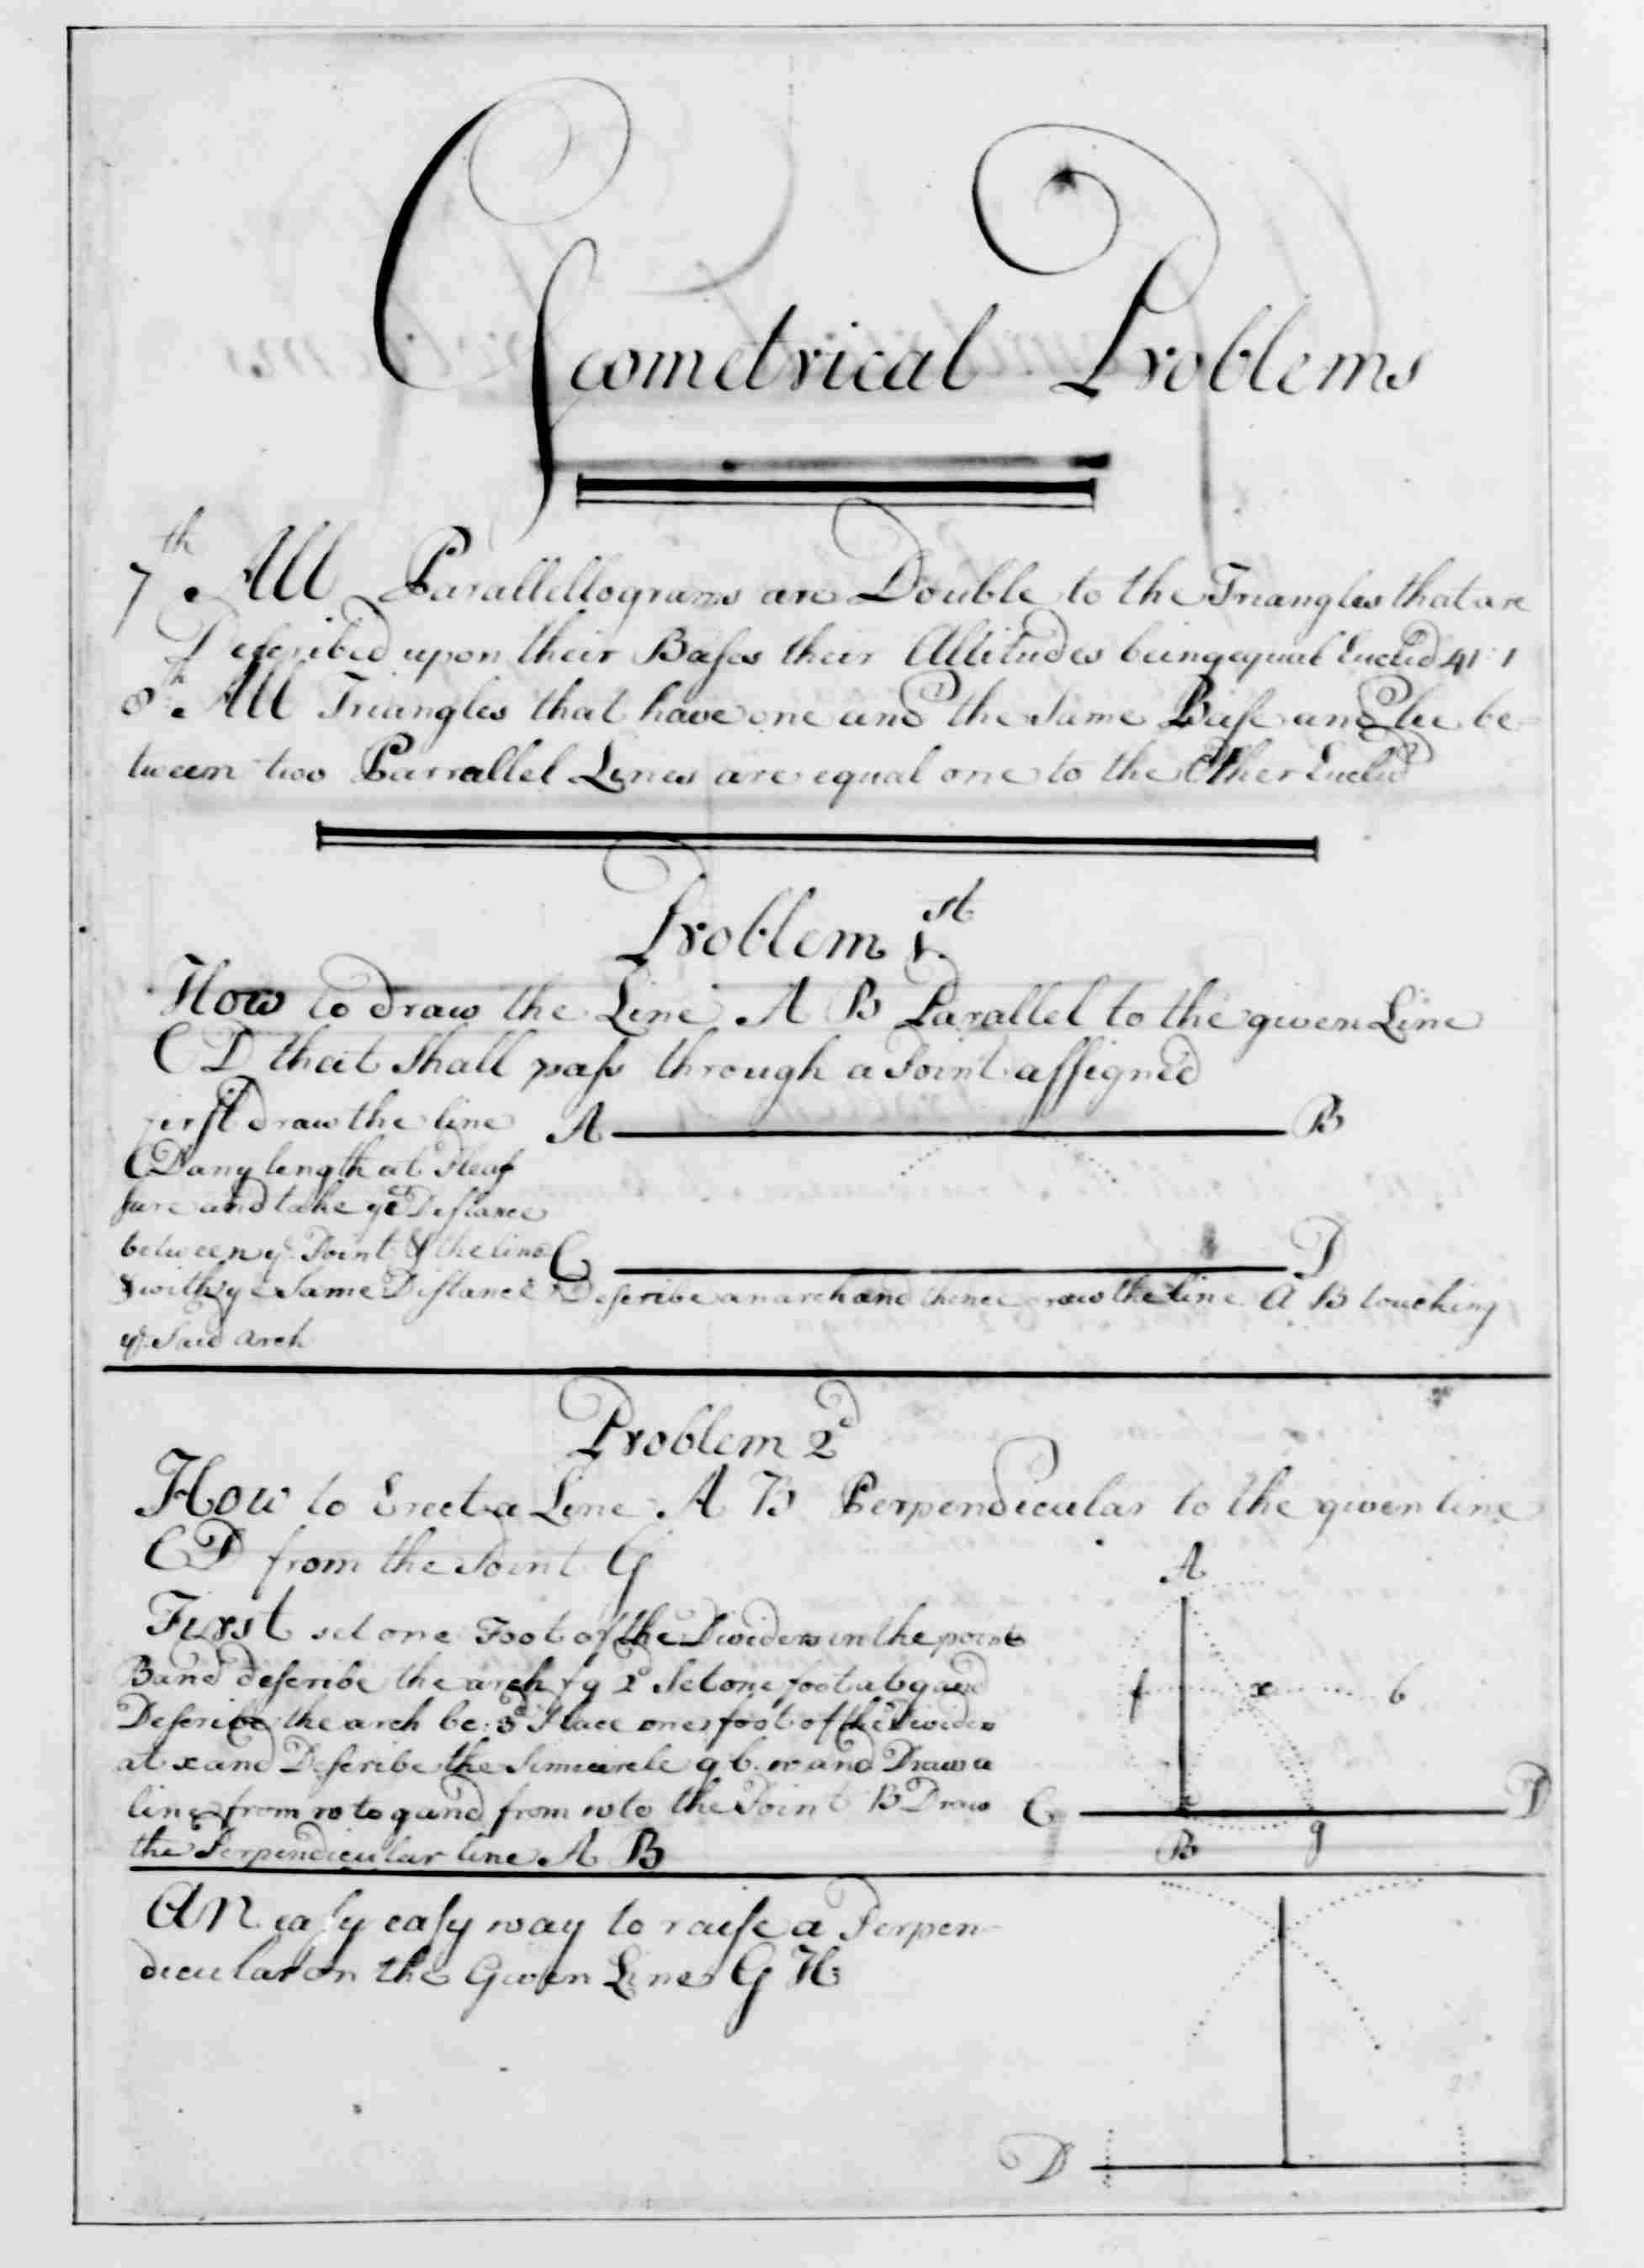 Geometrical Problems
7th All Parallellograms are Double to the Triangles that are
Described upon their Bases their Altitudes being equal Euclid 41:1
8th All Triangles that have one and the same Base and be
tween two Parrallel Lines are equal one to the Other Euclid
Problem 1st
How to draw the Line A B Parallel to the given Line
C D that Shall pass through a Point assigned
First draw the line
A B
CD any length at Pleas
sure and take ye Distance
between ye Point & the line C D
& with ye Same Distance Describe an arch and thence draw the line A B touching
ye Said arch
Problem 2d
How to Erect a Line A B Perpendicular to the given line
C D from the Point G
A
First set one Foot of the Dividers in the point
B and describe the arch f g 2d Set one foot at g and
f x 6
Describe the arch be: 3d Place one foot of the Dividers
at x and Describe the Simicircle g 6 and Draw a
line from to g and from to the Point B Draw
C D
the Perpendicular line A B
B g
An easy easy way to raise a Perpen-
dicular on the Given Line G H
D